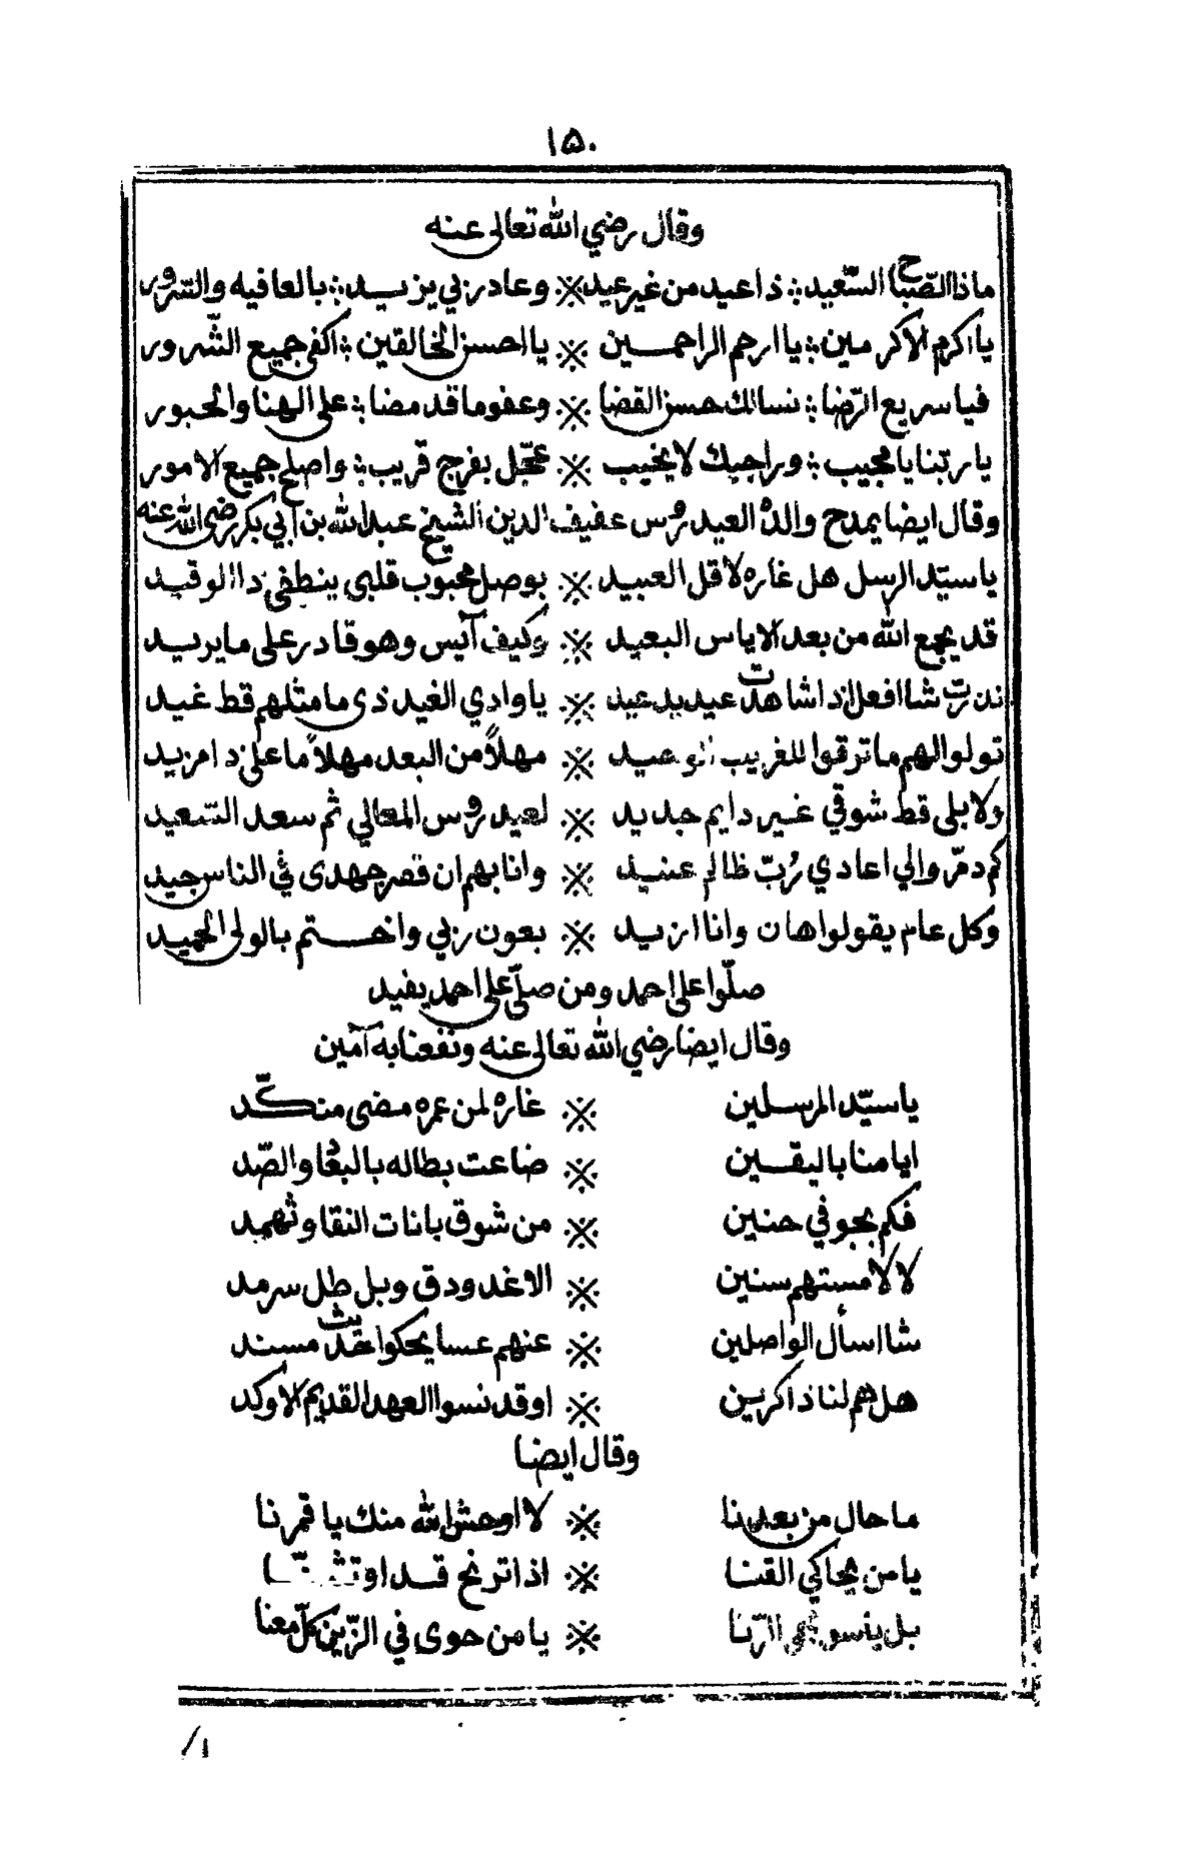 ١٥٠
وقال رضي الله تعالى عنه
ماذا الصّباح السّعيد ؞ ذا عيد من غير عيد ※ وعاد ربي يزيد ؞ بالعافيه والسّرور
يا اكرم الاكرمين ؞ يا ارحم الراحمين ※ يا احسن الخالقين ؞ اكفي جميع الشّرور
فيا سريع الرّضا ؞ نسالك حسن القضا ※ وعفو ما قد مضا ؞ على الهنا والحبور
يا ربنا يا مجيب ؞ وراجيك لا يخيب ※ عجّل بفرج قريب ؞ واصلح جميع الامور
وقال ايضا يمدح والده العيدروس عفيف الدين الشيخ عبدالله بن ابي بكر رضي الله عنه
يا سيّد الرسل هل غاره لاقل العبيد ※ بوصل محبوب قلبي ينطفي ذا الوقيد
قد يجمع الله من بعد الاياس البعيد ※ وكيف آيس وهو قادر على ما يريد
ندرت شا افعل اذا شاهدت عيديد عيد ※ يا وادي الغيد ذى ما مثلهم قط غيد
تولوا لهم ما ترقوا للغريب ※ مهلاً من البعد مهلاً ما على ذا مزيد
ولا بلى قط شوقي غير دايم جديد ※ لعيدروس المعالي ثم سعد السّعيد
كم دمّر والي اعادي رُبّ ظالم عنيد ※ وانا بهم ان قصر جهدى في الناس جيد
وكل عام يقولوا هان وانا ازيد ※ بعون ربي واختم بالولى الحميد
صلّوا على احمد ومن صلّى على احمد يفيد
وقال ايضا رضي الله تعالى عنه ونفعنا به آمين
يا سيّد المرسلين ※ غاره لمن عمره مضى منكّد
ايامنا باليقين ※ ضاعت بطاله بالبعاد والصّد
فكم بجو في حنين ※ من شوق بانات النقا وثهمد
لا لا مستهم سنين ※ الا غدودق وبل طل سرمد
شا اسأل الواصلين ※ عنهم عسا يحكوا حديث مسند
هل هم لنا ذاكرين ※ او قد نسوا العهد القديم الاوكد
وقال ايضا
ما حال من بعدنا ※ لا اوحش الله منك يا قمرنا
يا من يحاكي القنا ※ اذا ترنح قد او تثنّا
بل ※ يا من حوى في الزّين كلّ معنا